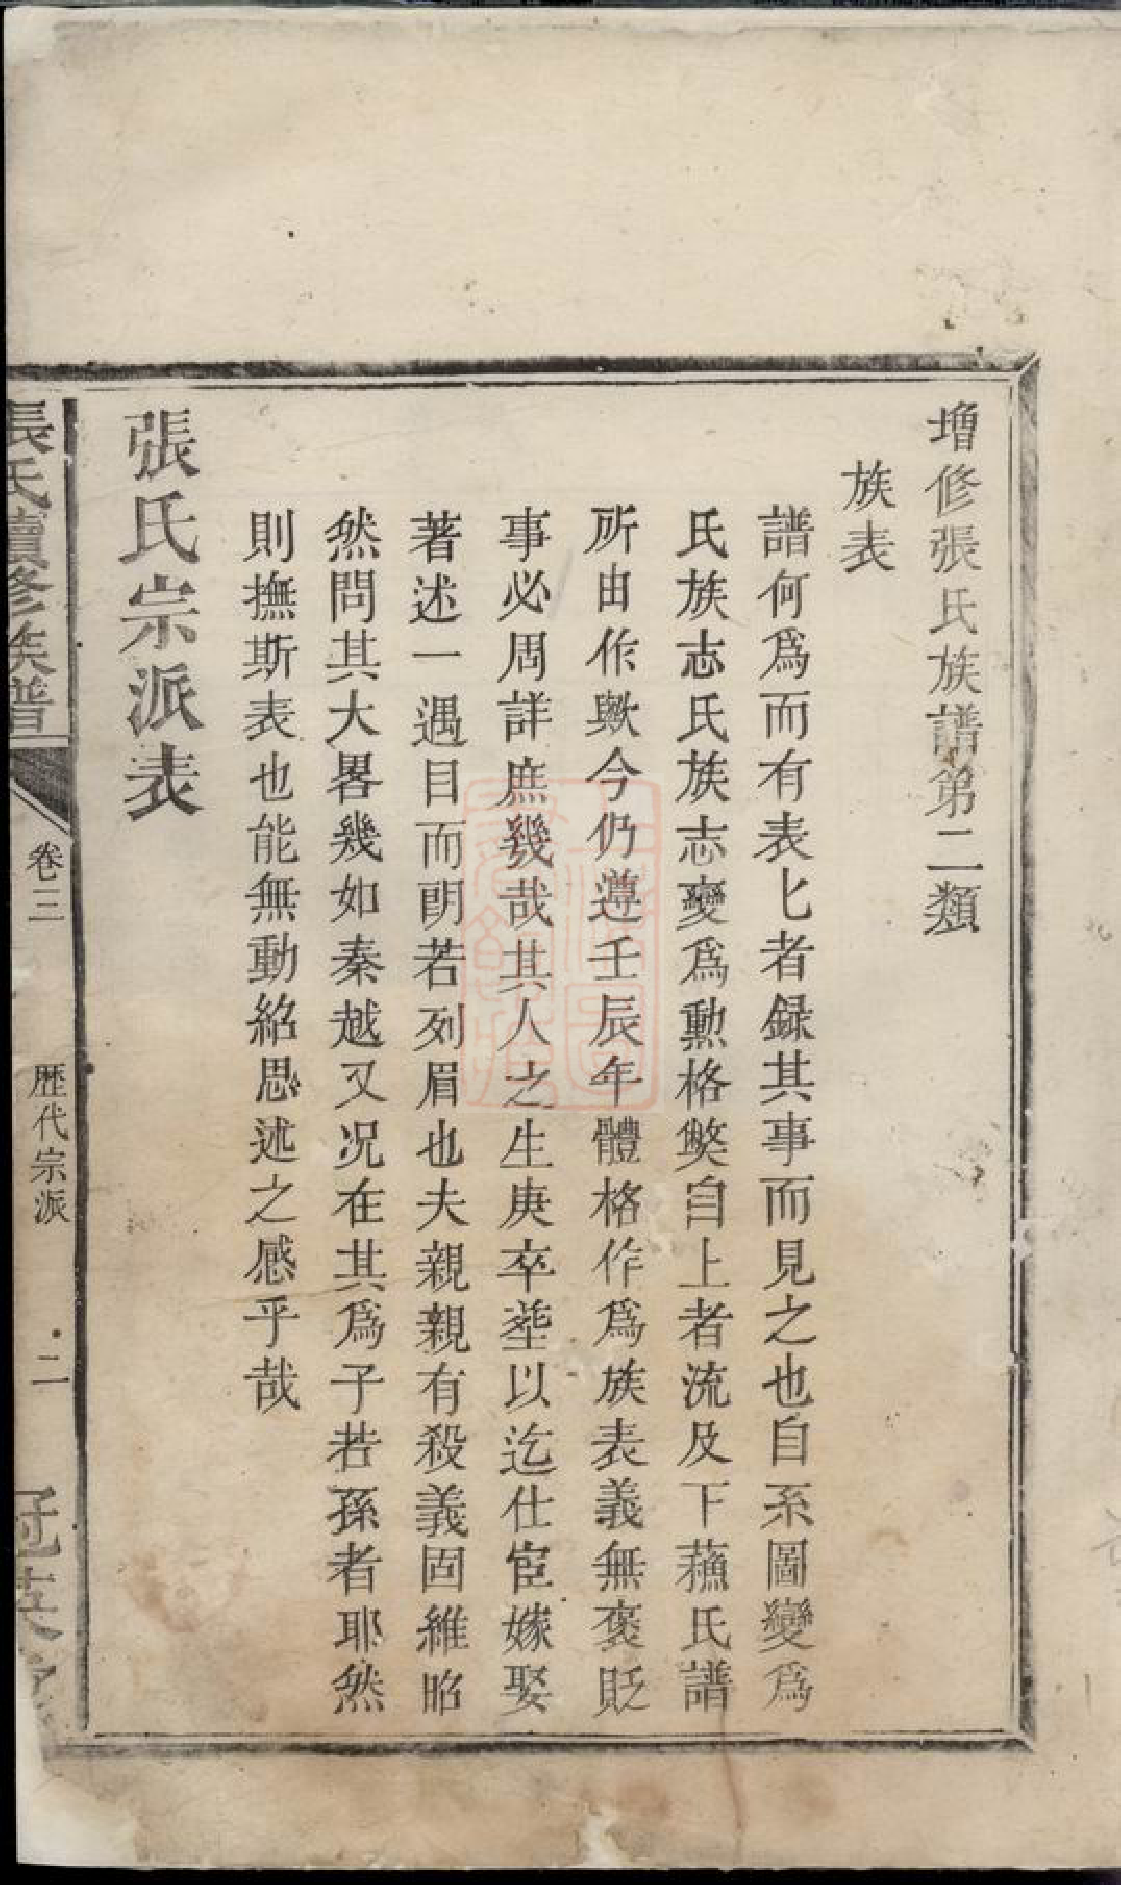 增修張氏族譜第二類
族表
譜何爲而有表匕者録其事而見之也自系圖變爲
氏族志氏族志變爲勲格獘自上者流及下蘓氏譜
所由作歟今仍遵壬辰年體格作爲族表義無褒貶
事必周詳庶幾哉其人之生庚卒塟以迄仕宦嫁娶
著述一遇目而朗若列眉也夫親親有殺義固維昭
然問其大畧幾如秦越又况在其爲子若孫者耶然
則撫斯表也能無動紹思述之感乎哉
張氏宗派表
張氏續修族譜
卷三
歴代宗派
二
冠英